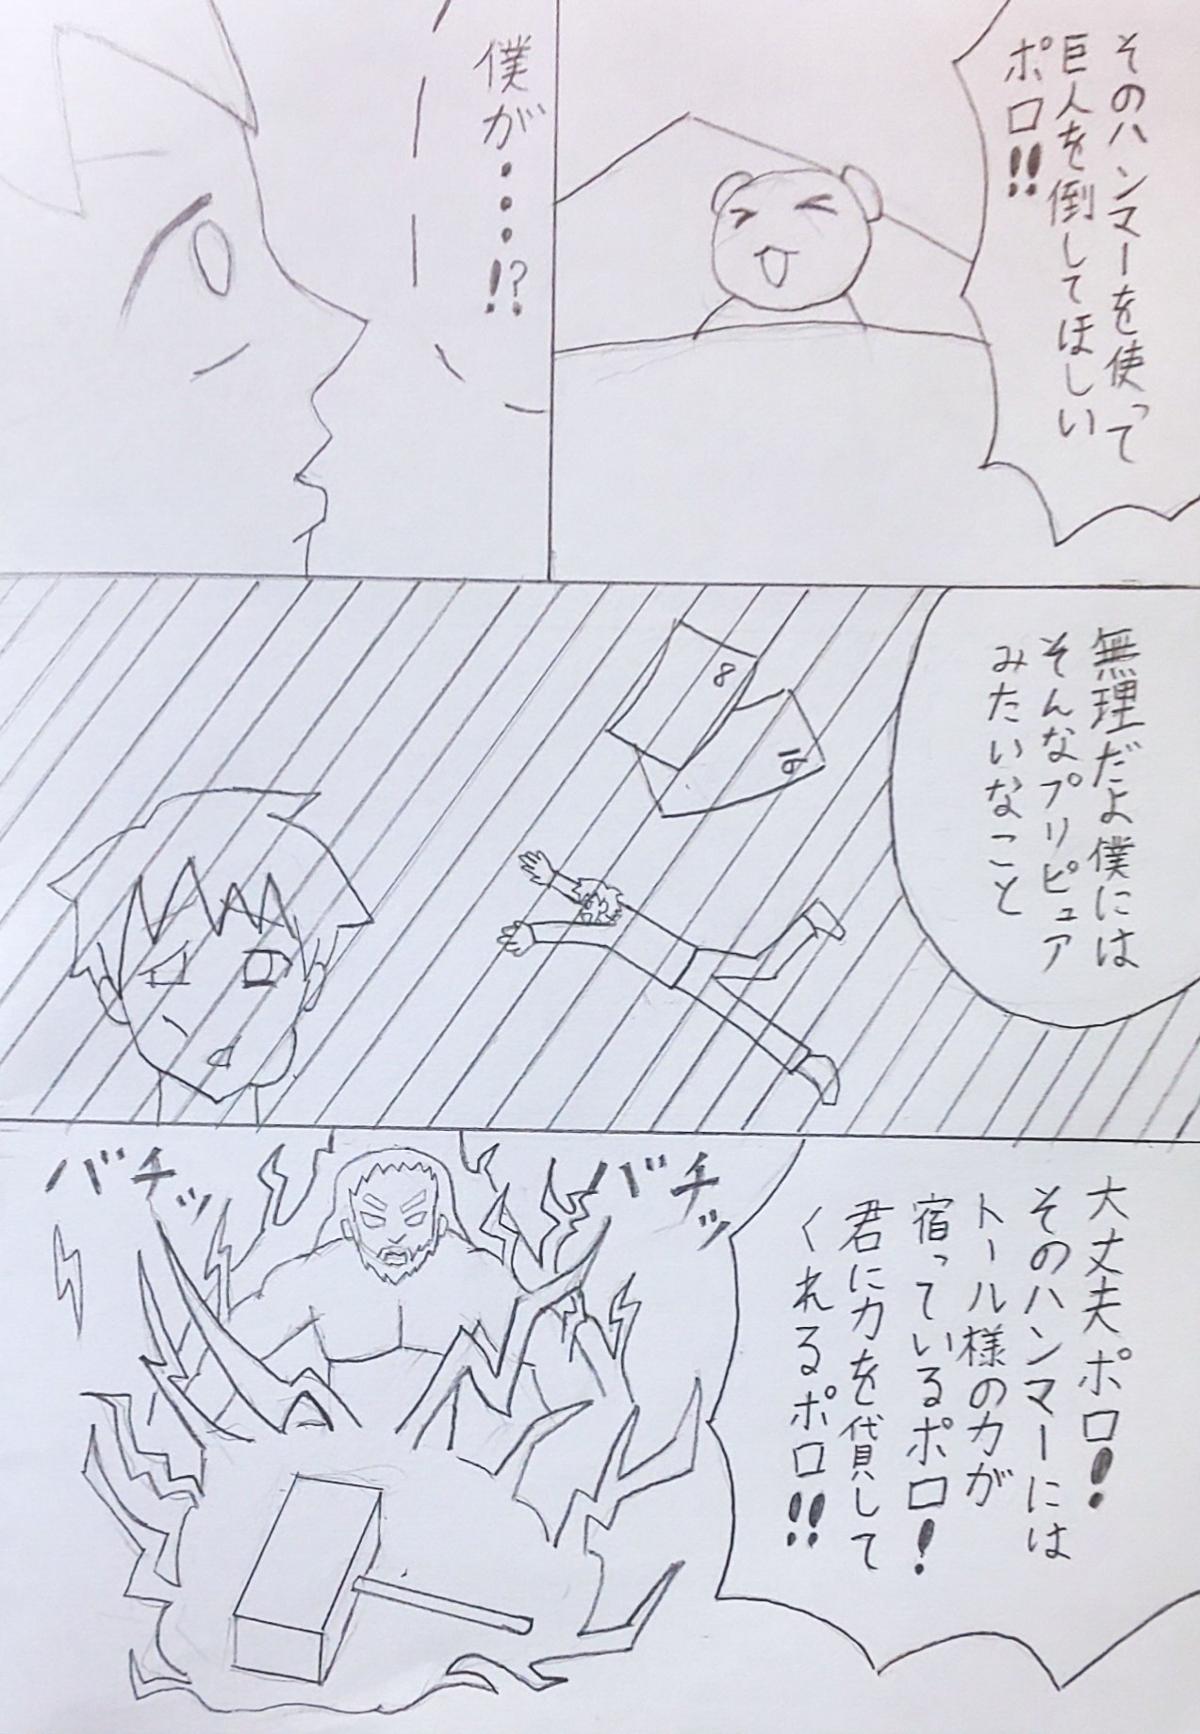 そのハンマーを使って
巨人を倒してほしい
ポロ!!
僕が・・・・!?
無理だよ僕には
そんなプリピュア
みたいなこと
8
19
大丈夫ポロ!
そのハンマーには
トール様の力が
宿っているポロ!
君に力を貸して
くれるポロ!!
バチッ
バチッ